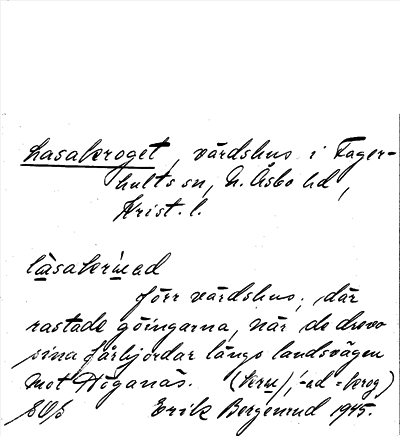 Lasakroget, värdshus i Fager-
hults sn, N. Åsbo hd,
Krist. l.
lasakruad
förr värdshus, där
rastade göingarna, när de drevo
sina fårhjordar längs landsvägen
mot Höganäs. (kru/, -ad = krog)
Erik Bergerud 1945.